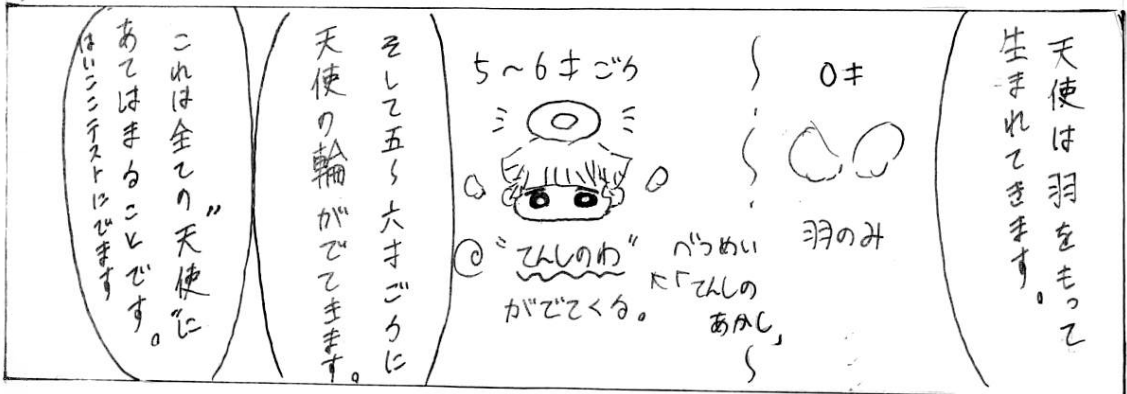 天使は羽をもって
生まれてきます。
0才
羽のみ
5〜6才ごろ
"てんしのわ"
がでてくる。
べつめい
「てんしの
あかし」
そして五〜六才ごろに
天使の輪がでてきます。
これは全ての"天使"に
あてはまることです。
はいここテストにでます